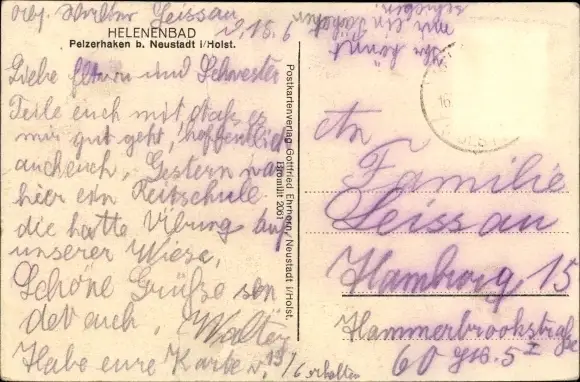 Walter Leissau
d. 15. 6
HELENENBAD
Pelzerhaken b. Neustadt i/Holst.
Liebe Eltern und Schwester
Teile euch mit daß es
mir gut geht, hoffentlich
auch euch. Gestern war
hier ein Reitschule
die hatte Übung auf
unserer Wiese,
Schöne Grüße sen
det euch, Walter
Habe eure Karte v. 13/6 erhalten
Ihr könnt
mir ein
schicken
Postkartenverlag Gottfried Ehrhorn, Neustadt i/Holst.
Bromüt 2061
An
Familie
Leissau
Hamborg 15
Hammerbrookstraße
60 Hs. 5 I